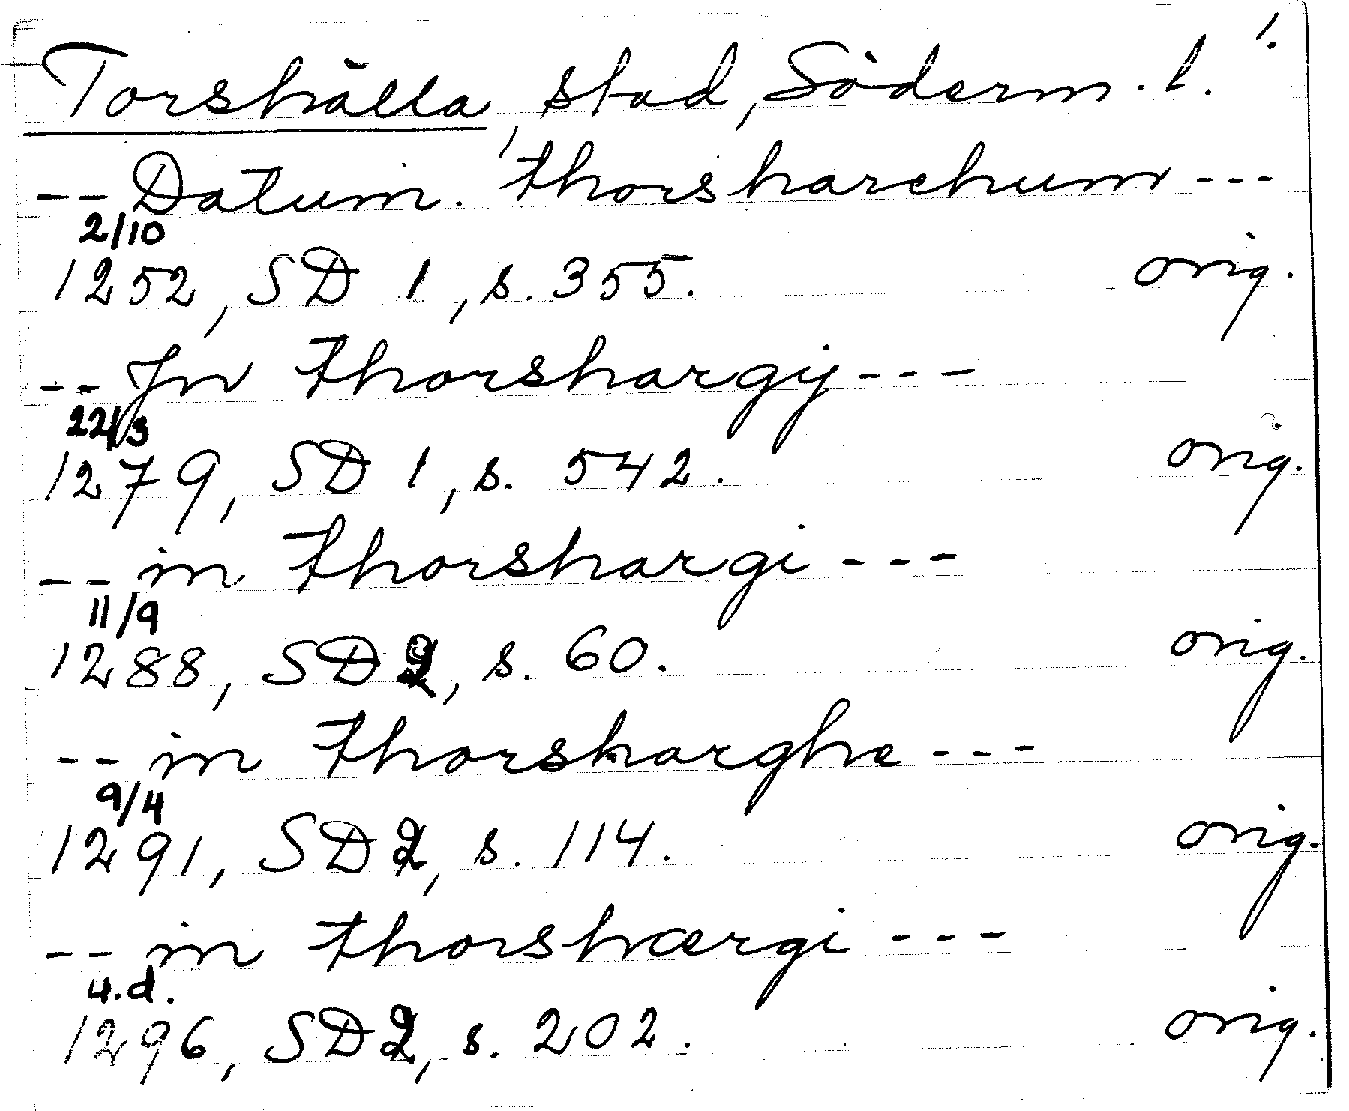 1.
Torshälla, stad, Söderm. l.
-- Datum. thorsharchum ---
2/10
1252, SD 1, s. 355. orig.
-- Jn thorshargij ---
22/3
1279, SD 1, s. 542. orig.
-- in thorshargi ---
11/9
1288, SD 2, s. 60. orig.
-- in thorsharghe ---
9/4
1291, SD 2, s. 114. orig.
-- in thorshærgi ---
u.d.
1296, SD 2, s. 202. orig.